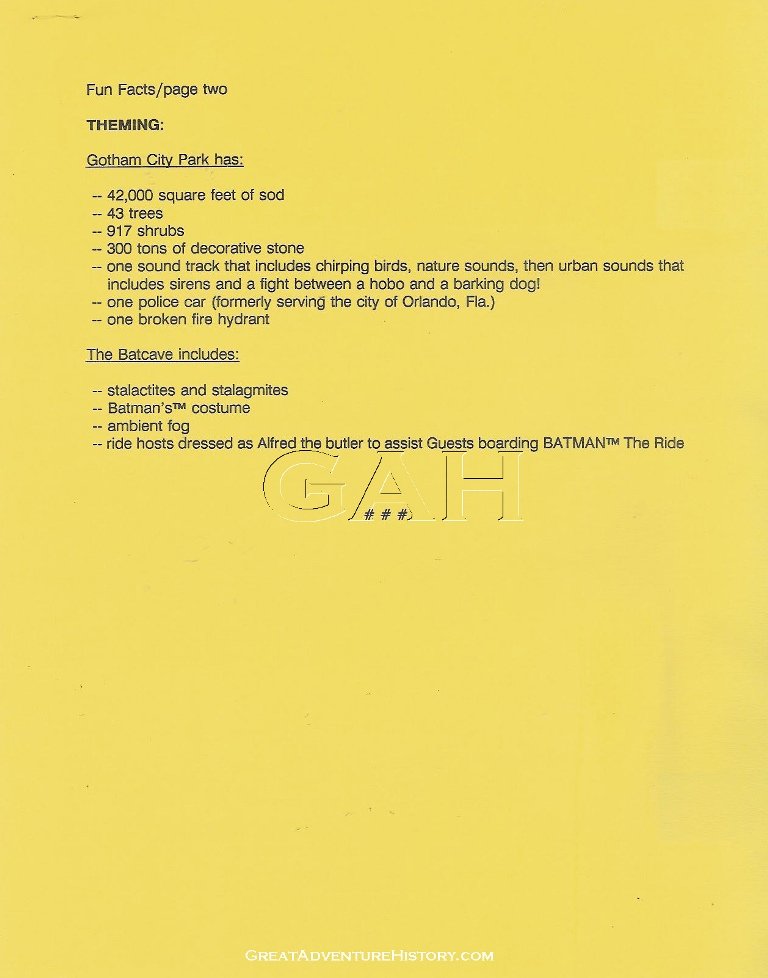 Fun Facts/page two
THEMING:
Gotham City Park has:
-- 42,000 square feet of sod
-- 43 trees
-- 917 shrubs
-- 300 tons of decorative stone
-- one sound track that includes chirping birds, nature sounds, then urban sounds that
includes sirens and a fight between a hobo and a barking dog!
-- one police car (formerly serving the city of Orlando, Fla.)
-- one broken fire hydrant
The Batcave includes:
-- stalactites and stalagmites
-- Batman's™ costume
-- ambient fog
-- ride hosts dressed as Alfred the butler to assist Guests boarding BATMAN™ The Ride
GAH
# # #
GREATADVENTUREHISTORY.COM